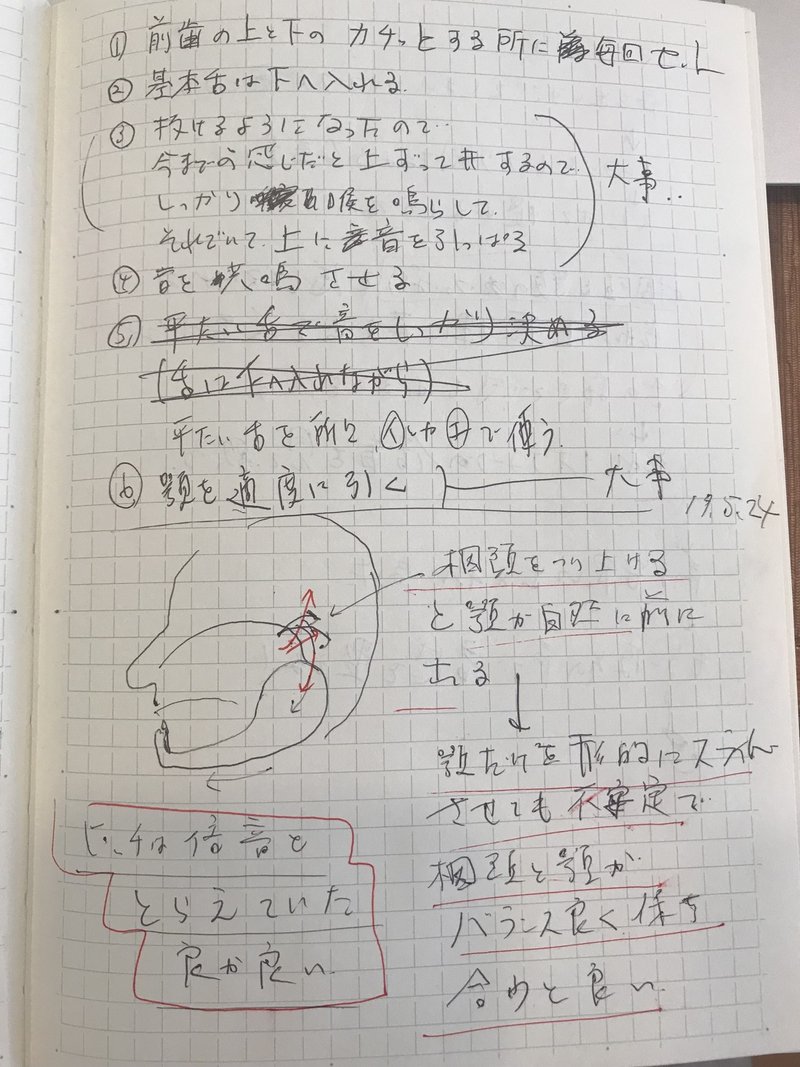 ① 前歯の上と下の カチッとする所に 毎回セット
② 基本舌は下へ入れる.
③ 抜けるようになったので…
今までの感じだと上ずって#するので…
しっかり 喉を鳴らして.
それでいて. 上に 音を引っぱる
大事..
④ 音を共鳴させる
⑤, 平たい舌で音をしっかり決める
(舌は下へ入れながら)
平たい舌を所に で使う.
⑥ 顎を適度に引く
大事
19.5.24
相頭をつり上げる
と顎が自然に前に
出る
↓
顎だけを形的にスライド
させても不安定で
相頭と顎が
バランス良く保ち
合うと良い.
ピッチは倍音と
とらえていた
良が良い.